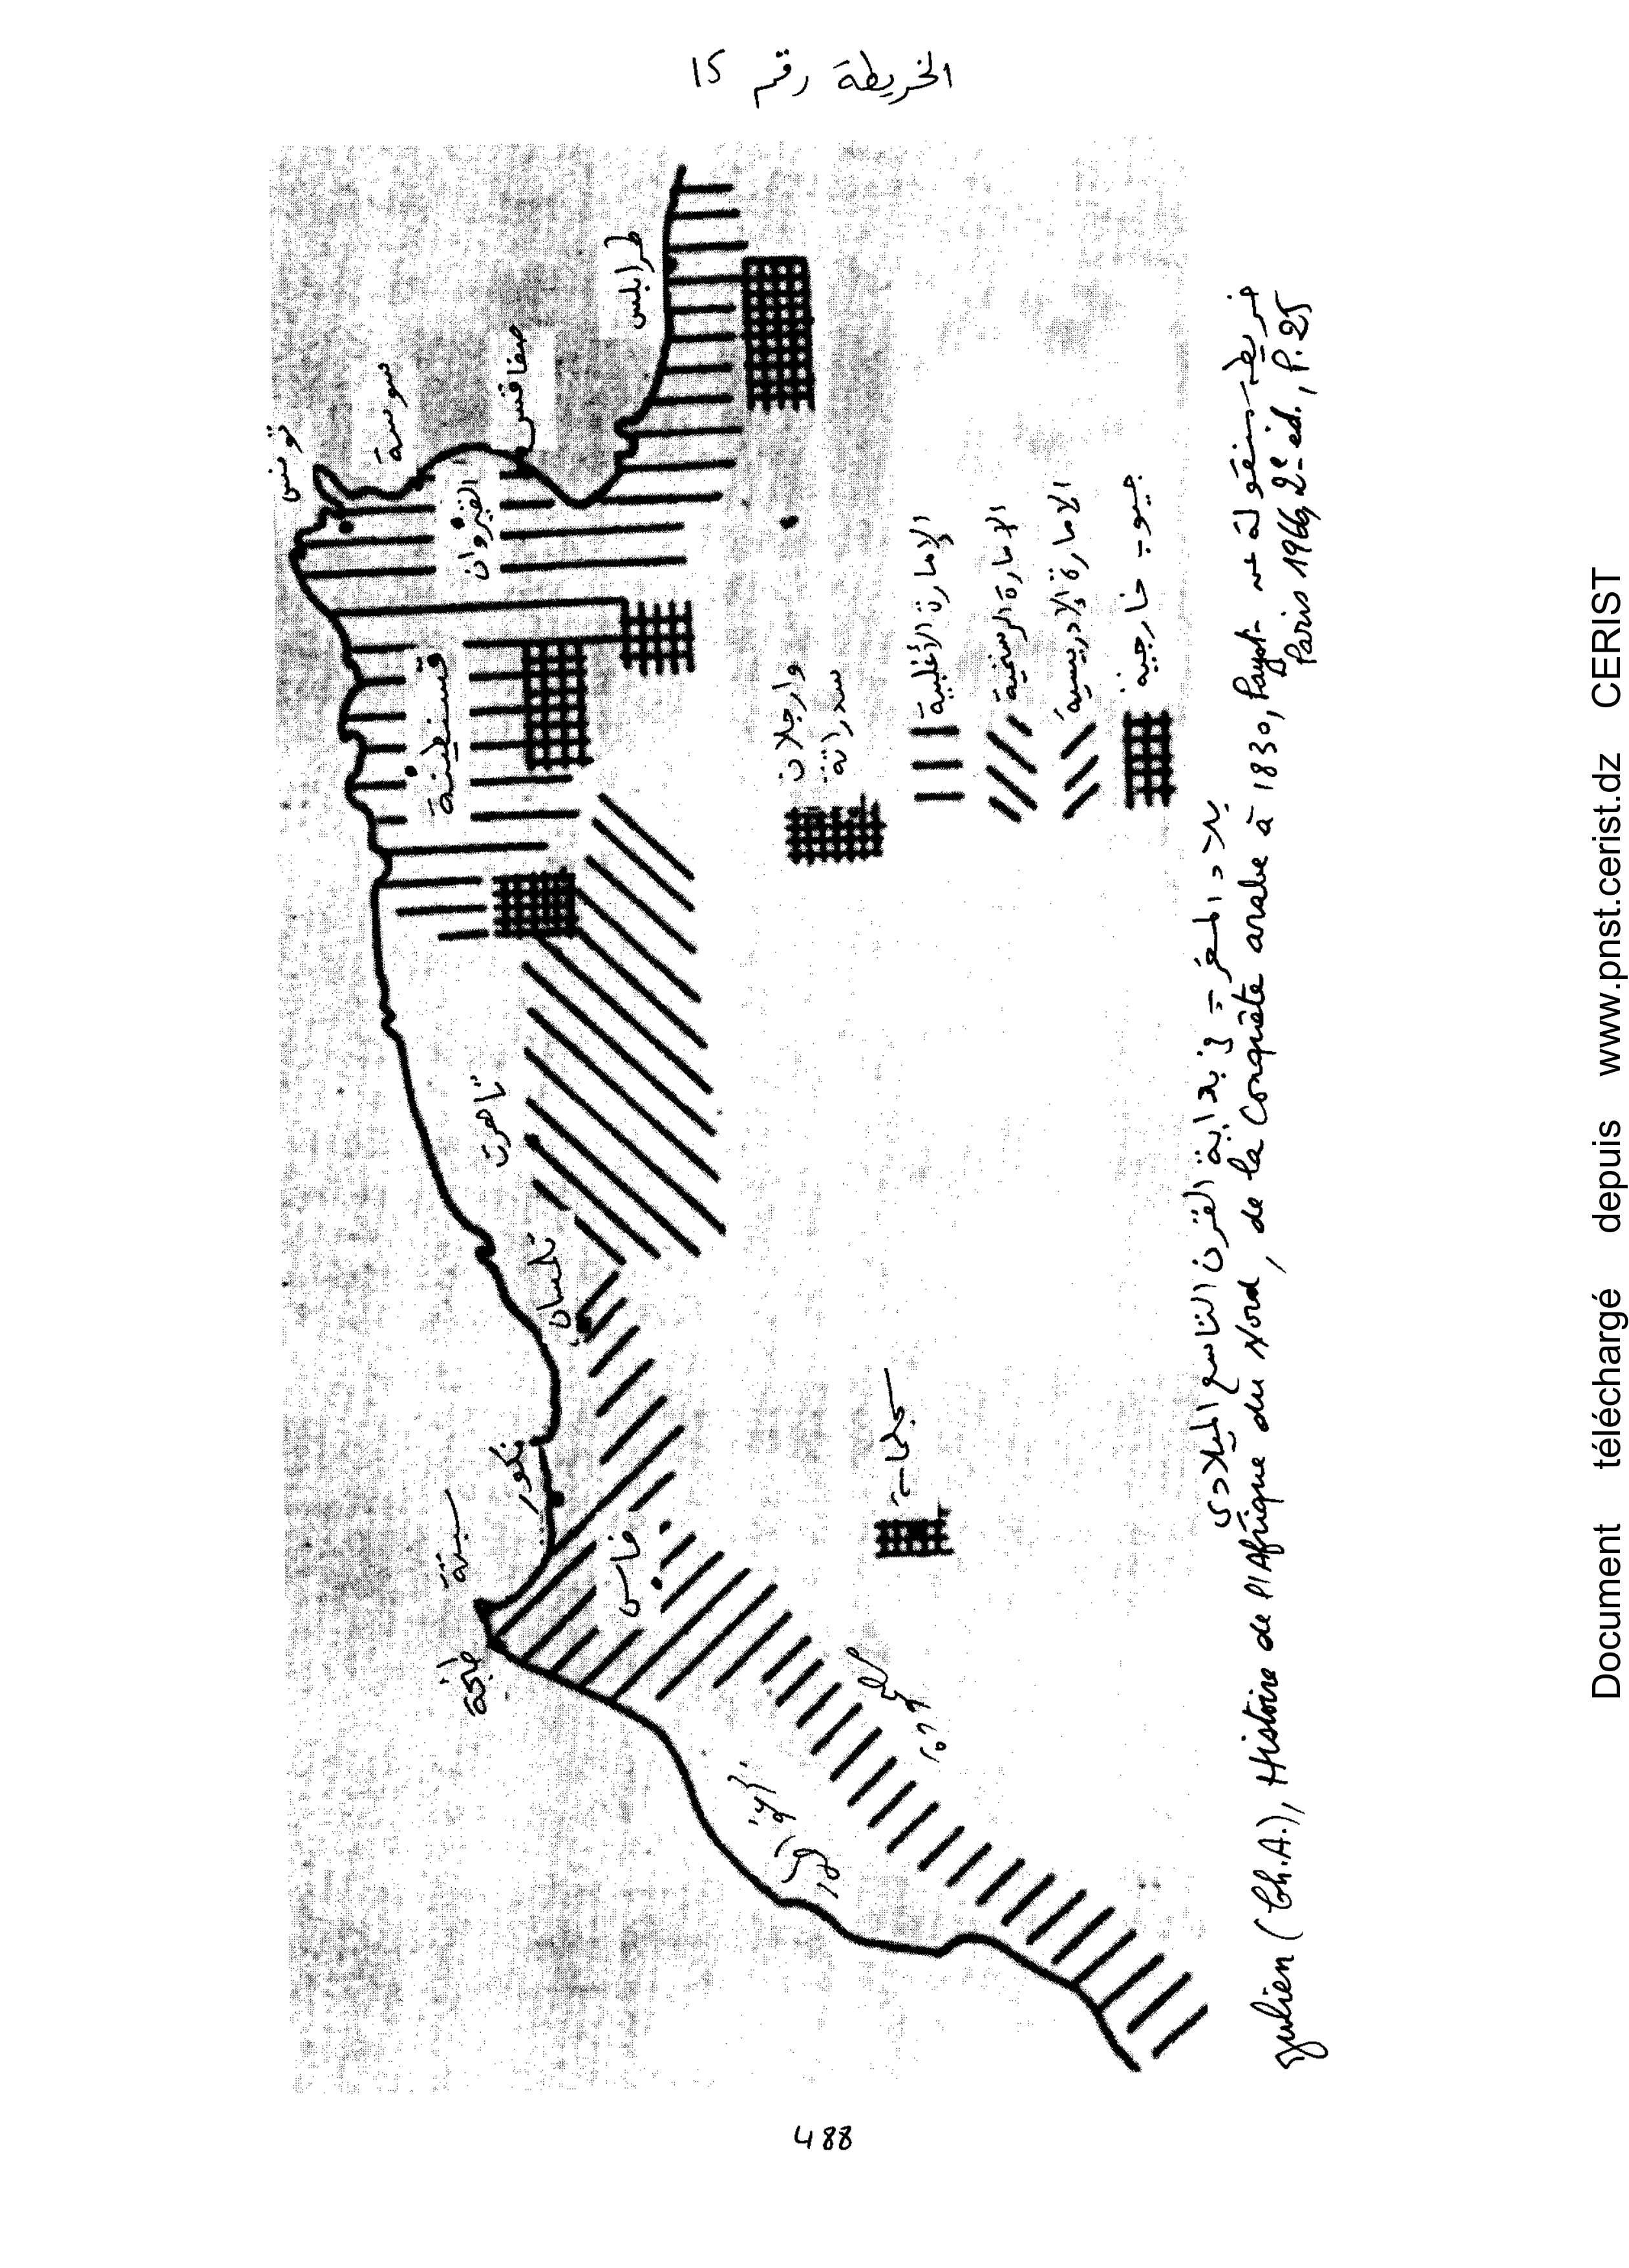 الخريطة رقم 15
تونس
سوسة
صفاقس
طرابلس
القيروان
قسنطينة
تاهرت
تلمسان
نكور
سبتة
طنجة
فاس
سجلماسة
وارجلان
سدراتة
الإمارة الأغلبية
الإمارة الرستمية
الامارة الإدريسية
جيوب خارجية
بلاد المغرب في بداية القرن التاسع الميلادي
خريطة منقولة عن
Julien (Ch.A.), Histoire de l'Afrique du Nord, de la Conquête arabe à 1830, Payot
Paris 1966, 2e éd., P. 25
488
Document téléchargé depuis www.pnst.cerist.dz CERIST